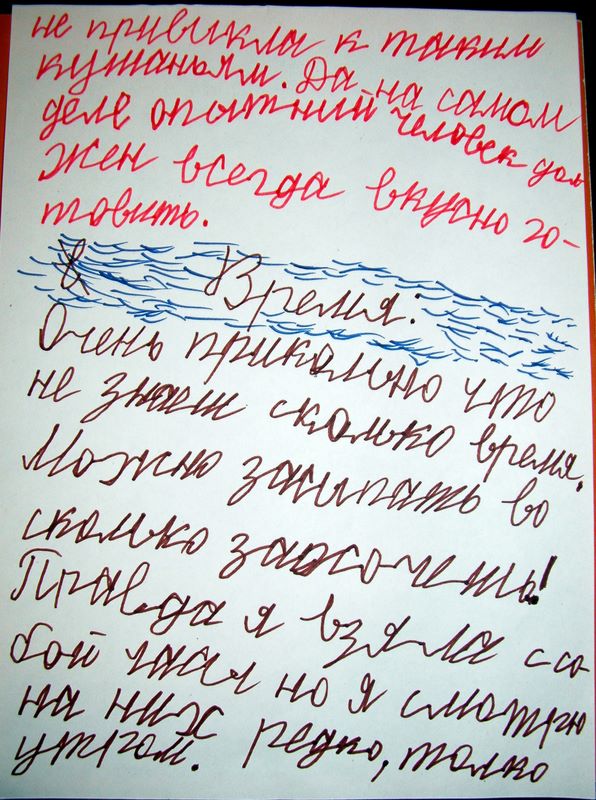 не привикла к таким
кушаньям. Да на самом
деле опытний человек дол
жен всегда вкусно го-
товить.
8 Время:
Очень прикольно что
не знаеш сколько время.
Можно засыпать во
сколько захочешь!
Правда я взяла с со
бой часы но я смотрю
на них редко, толко
утром.